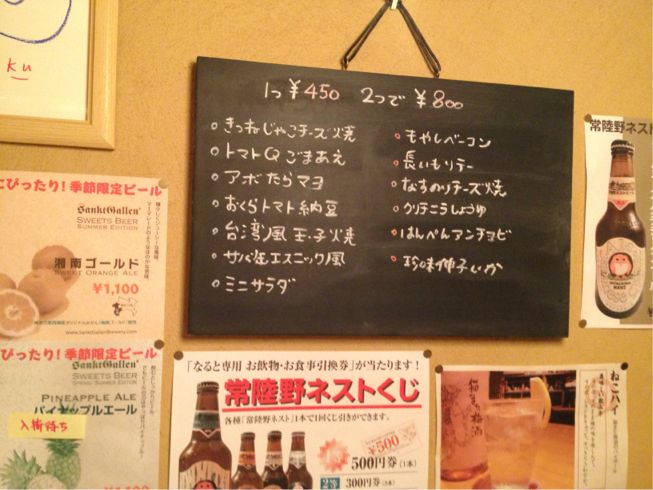 ku
1つ ¥450 2つで ¥800
きつねじゃこチーズ焼
トマトQごまあえ
アボたらマヨ
おくらトマト納豆
台湾風玉子焼
サバ缶エスニック風
ミニサラダ
もやしベーコン
長いもソテー
なすのりチーズ焼
クリチニラしょうゆ
はんぺんアンチョビ
珍味伸子いか
ぴったり!季節限定ビール
Sankt Gallen
SWEETS BEER
SUMMER EDITION
湘南ゴールド
SWEET ORANGE ALE
¥1,100
www.SanktGallenBrewery.com
ぴったり!季節限定ビール
Sankt Gallen
SWEETS BEER
PINEAPPLE ALE
パイナップルエール
入荷待ち
「なると専用 お飲物・お食事引換券」が当たります!
常陸野ネストくじ
各種「常陸野ネスト」1本で1回くじ引きができます。
¥500
500円券(1本)
300円券(3本)
常陸野ネスト
NEST
ねこハイ
梅酒